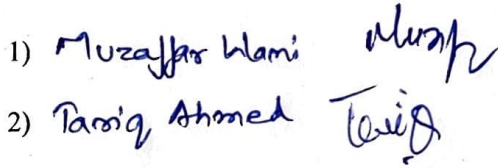 1) Muzaffar Wani Muzaf
2) Tariq Ahmed Tariq